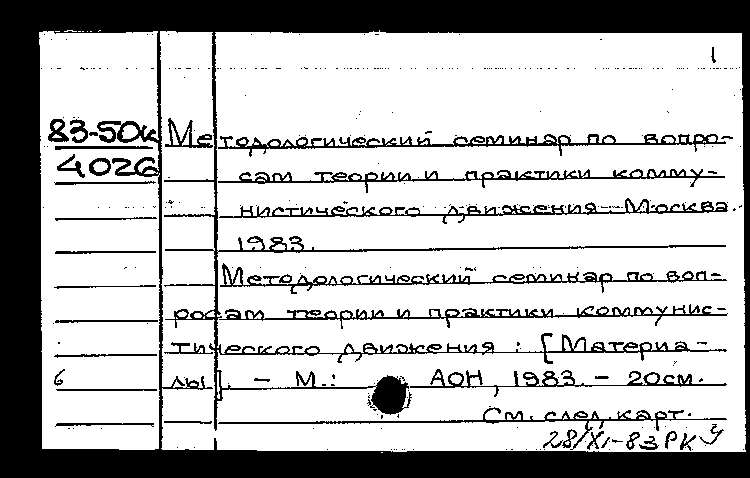 1
83-50к Методологический семинар по вопро-
4026 сам теории и практики комму-
нистического движения. Москва.
1983.
Методологический семинар по воп-
росам теории и практики коммунис-
тического движения : [Материа-
6 лы]. - М.: АОН, 1983. - 20см.
См. след. карт.
28/XI-83 РК